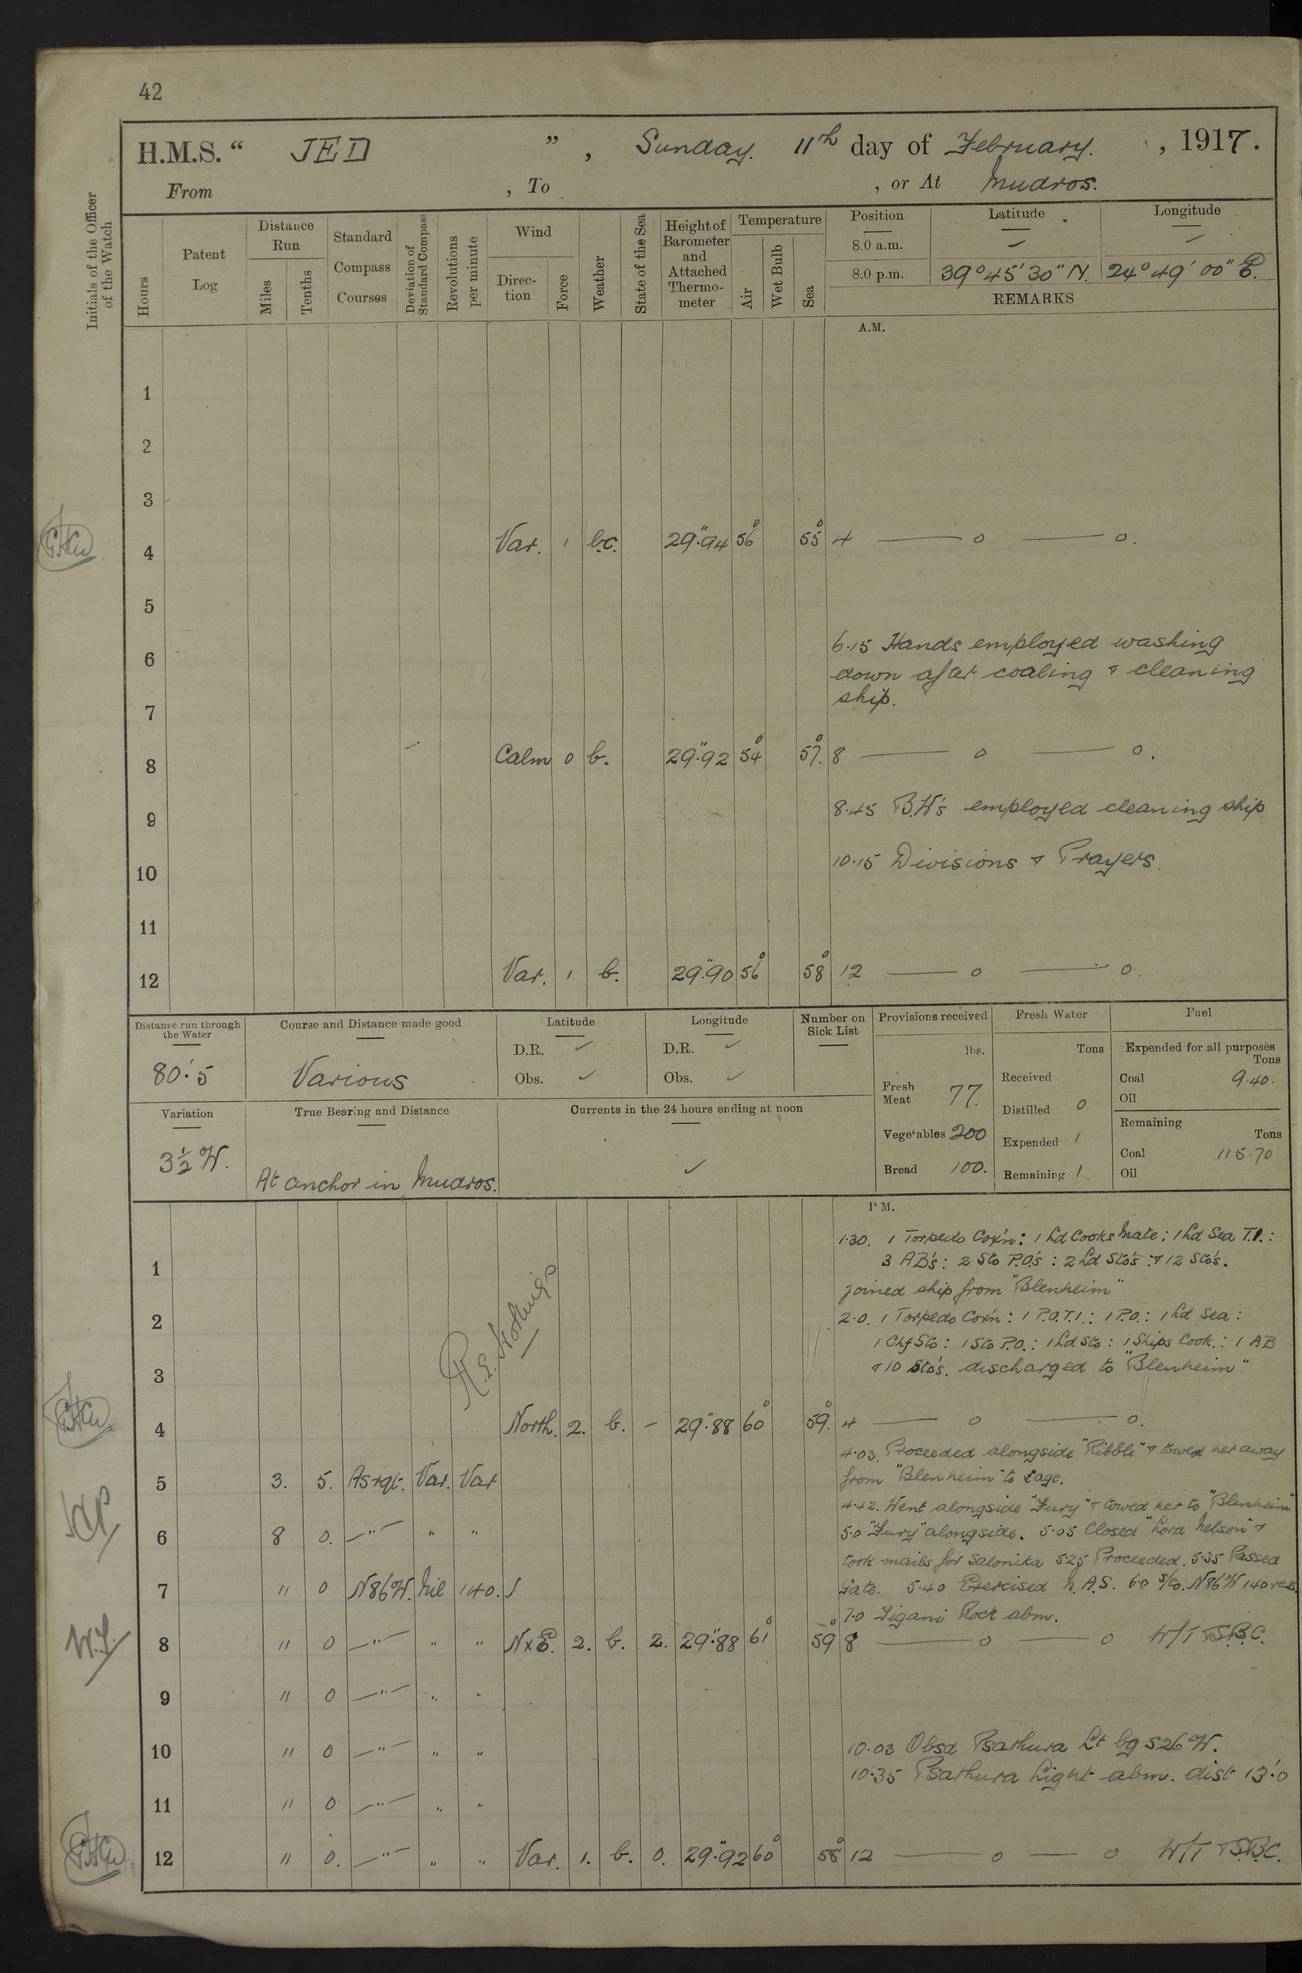 42
H.M.S. “ JED ” , Sunday. 11th day of February. , 1917.
From , To , or At Mudros.
Initials of the Officer of the Watch
Hours
Patent Log
Distance Run
Miles
Tenths
Standard Compass Courses
Deviation of Standard Compass
Revolutions per minute
Wind
Direction
Force
Weather
State of the Sea
Height of Barometer and Attached Thermometer
Temperature
Air
Wet Bulb
Sea
Position Latitude Longitude
8.0 a.m. ✓ ✓
8.0 p.m. 39° 45' 30" N. 24° 49' 00" E.
REMARKS
A.M.
1
2
3
4 Var. 1 b.c. 29".94 56° 55° 4 — o — o.
5
6 6.15 Hands employed washing
down after coaling & cleaning
7 ship.
8 Calm 0 b. 29".92 54° 57°. 8 — o — o.
9 8.45 B.W's employed cleaning ship
10 10.15 Divisions & Prayers.
11
12 Var. 1 b. 29".90 56° 58° 12 — o — o.
Distance run through the Water
80.'5
Course and Distance made good
Various
Latitude
D.R. ✓
Obs. ✓
Longitude
D.R. ✓
Obs. ✓
Number on Sick List
Provisions received
lbs.
Fresh Meat 77.
Vegetables 200
Bread 100.
Fresh Water
Tons
Received
Distilled 0
Expended 1
Remaining 1
Fuel
Expended for all purposes
Tons
Coal 9.40.
Oil
Remaining
Tons
Coal 115.70
Oil
Variation
3½ W.
True Bearing and Distance
At anchor in Mudros.
Currents in the 24 hours ending at noon
✓
P.M.
1.30. 1 Torpedo Cox'n: 1 Ld Cooks Mate: 1 Ld Sea T.I.:
1 3 AB's: 2 Sto P.O's: 2 Ld Sto's: & 12 Sto's.
joined ship from "Blenheim"
2 2.0. 1 Torpedo Cox'n: 1 P.O.T.I.: 1 P.O.: 1 Ld Sea:
1 Chf Sto: 1 Sto P.O.: 1 Ld Sto: 1 Ships Cook.: 1 AB
3 & 10 Sto's. discharged to "Blenheim"
4 North. 2. b. – 29".88 60° 59°. 4 — o — o.
4.03. Proceeded alongside "Ribble" & towed her away
5 3. 5. As rqt. Var. Var from "Blenheim" to
4.42. Went alongside "Fury" & towed her to "Blenheim"
6 8 0. —"— " " 5.0 "Fury" alongside. 5.05 Closed "Lord Nelson" &
took mails for Salonika 5.25 Proceeded. 5.35 Passed
7 11 0 N86W. Nil 140. Gate. 5.40 Exercised N.A.S. 6.0 S/Co. N86W 140 revs.
7.0 Tigani Rock abm.
8 11 0 —"— " " N x E. 2. b. 2. 29".88 61° 59° 8 — o — o W/T & S.B.C.
9 11 0 —"— " "
10 11 0 —"— " " 10.03 Obsd Psathura Lt bg S26W.
10.35 Psathura Light abm. dist 13.'0
11 11 0 —"— " "
12 11 0. —"— " " Var. 1. b. 0. 29".92 60° 58° 12 — o — o W/T & S.B.C.